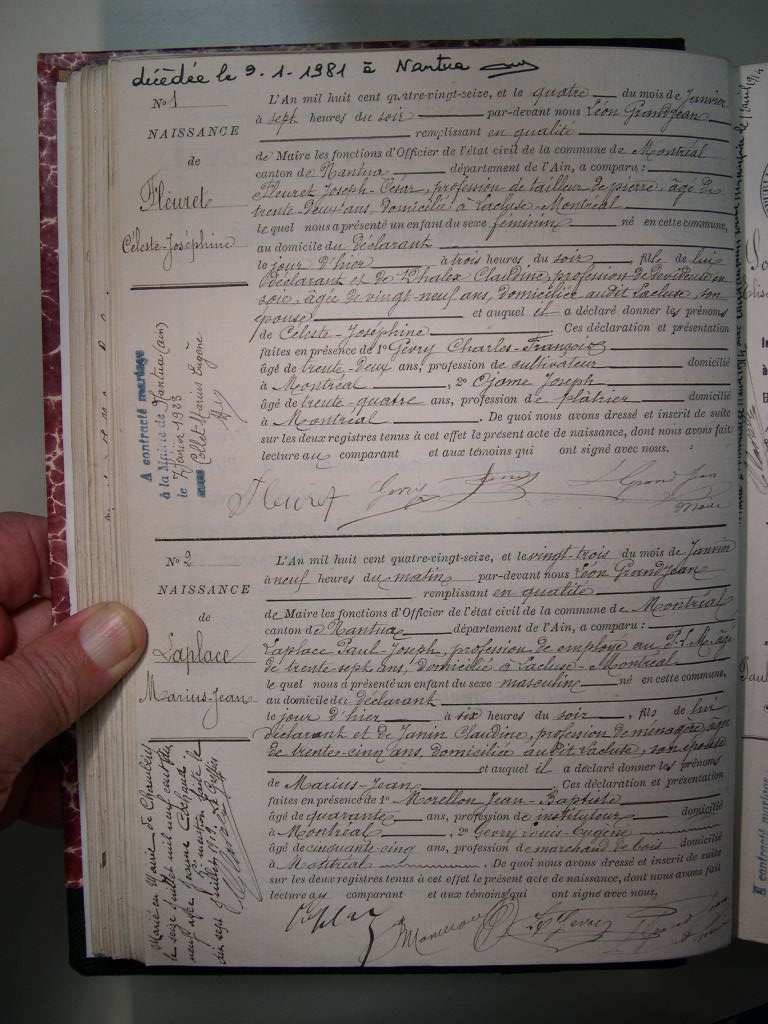 décédée le 9.1.1981 à Nantua
No 1
NAISSANCE
de
Fleuret
Céleste-Joséphine
L'An mil huit cent quatre-vingt-seize, et le quatre du mois de Janvier
à sept heures du soir par-devant nous Léon Grandjean
remplissant en qualité
de Maire les fonctions d'Officier de l'état civil de la commune de Montréal
canton de Nantua département de l'Ain, a comparu :
Fleuret Joseph-César, profession de tailleur de pierre, âgé de
trente-deux ans, domicilié à Lacluse-Montréal
lequel nous a présenté un enfant du sexe féminin né en cette commune,
au domicile du déclarant
le jour d'hier à trois heures du soir, fille de lui
déclarant et de Claudine, profession de dévideuse en
soie, âgée de vingt-neuf ans, domiciliée audit Lacluse, son
épouse et auquel il a déclaré donner les prénoms
de Céleste-Joséphine Ces déclaration et présentation
faites en présence de 1° Gevry Charles-François
âgé de trente-deux ans, profession de cultivateur domicilié
à Montréal, 2° Joseph
âgé de trente-quatre ans, profession de plâtrier domicilié
à Montréal. De quoi nous avons dressé et inscrit de suite
sur les deux registres tenus à cet effet le présent acte de naissance, dont nous avons fait
lecture au comparant et aux témoins qui ont signé avec nous.
A contracté mariage
à la Mairie de Nantua (ain)
le 7 février 1933
avec Collet Marius Eugène
Fleuret Gevry L. Grandjean
maire
No 2
NAISSANCE
de
Laplace
Marius-Jean
L'An mil huit cent quatre-vingt-seize, et le vingt-trois du mois de Janvier
à neuf heures du matin par-devant nous Léon Grandjean
remplissant en qualité
de Maire les fonctions d'Officier de l'état civil de la commune de Montréal
canton de Nantua département de l'Ain, a comparu :
Laplace Paul-Joseph, profession de employé au P.L.M. âgé
de trente sept ans, domicilié à Lacluse-Montréal
lequel nous a présenté un enfant du sexe masculin né en cette commune,
au domicile du déclarant
le jour d'hier à six heures du soir, fils de lui
déclarant et de Janin Claudine, profession de ménagère âgée
de trente-cinq ans, domiciliée audit Lacluse, son épouse
et auquel il a déclaré donner les prénoms
de Marius-Jean Ces déclaration et présentation
faites en présence de 1° Morellon Jean-Baptiste
âgé de quarante ans, profession de instituteur domicilié
à Montréal, 2° Gevry Louis-Eugène
âgé de cinquante cinq ans, profession de marchand de bois domicilié
à Montréal. De quoi nous avons dressé et inscrit de suite
sur les deux registres tenus à cet effet le présent acte de naissance, dont nous avons fait
lecture au comparant et aux témoins qui ont signé avec nous.
Marié en Mairie de Chambéry
le seize juillet mil neuf cent
neuf avec Jeanne